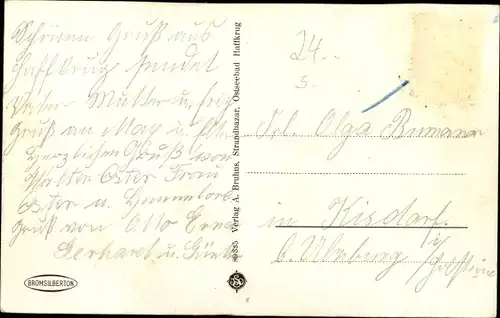 Schönen Gruß aus
Haffkrug sendet
Vater Mutter u.
Gruß an Max u.
Herzlichen Gruß von
Walter Oster Frau
Oster u.
Gruß von Otto
Gerhard u.
BROMSILBERTON
80335 Verlag A. Bruhns, Strandbazar, Ostseebad Haffkrug
24
5.
Frl. Olga
in Kisdorf
b. Ulzburg i/
Holstein